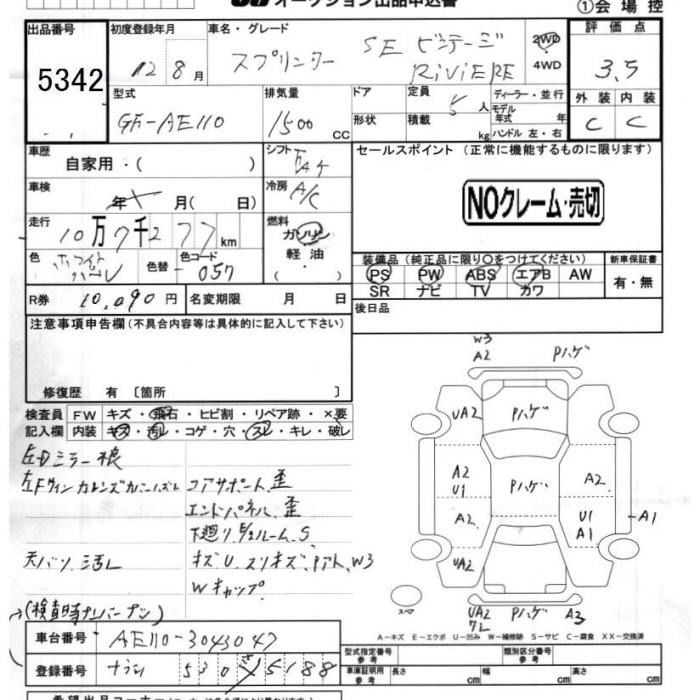 オークション出品申込書
①会場控
出品番号 5342
初度登録年月 12 8月
車名・グレード スプリンター SE ビンテージ RiViERE
2WD
4WD
評価点 3.5
外装 内装
C C
型式 GF-AE110
排気量 1500 CC
ドア
形状
定員 5人
積載 kg
ディーラー・並行
モデル年式 年
ハンドル 左・右
車歴 自家用・( )
シフト
車検 年 月( 日)
冷房 A/C
走行 10万7千277km
燃料 ガソリン
軽油
・( )
色 ホワイトパール
色替
色コード 057
R券 10,090円
名変期限 月 日
セールスポイント(正常に機能するものに限ります)
NOクレーム・売切
装備品(純正品に限り○をつけてください)
PS PW ABS エアB AW
SR ナビ TV カワ
新車保証書
有・無
後日品
注意事項申告欄(不具合内容等は具体的に記入して下さい)
修復歴 有〔箇所 〕
検査員記入欄
FW キズ・飛石・ヒビ割・リペア跡・×要
内装 キズ・汚レ・コゲ・穴・スレ・キレ・破レ
左Dミラー根
コアサポート歪
エンドパネル歪
キズU、スリキズ、Pアト、W3
Wキャップ
W3
A2
Pハゲ
UA2
Pハゲ
A2
U1
Pハゲ
A2
A2
U1
A1
A1
UA2
スペア
UA2
ワレ
A3
A-キズ E-エクボ U-凹み W-補修跡 S-サビ C-腐食 XX-交換済
(検査時ナンバープレ)
車台番号 AE110-3043047
登録番号
530 さ 5188
型式指定番号 参考
類別区分番号 参考
車庫証明用 参考
長さ cm
幅 cm
高さ cm